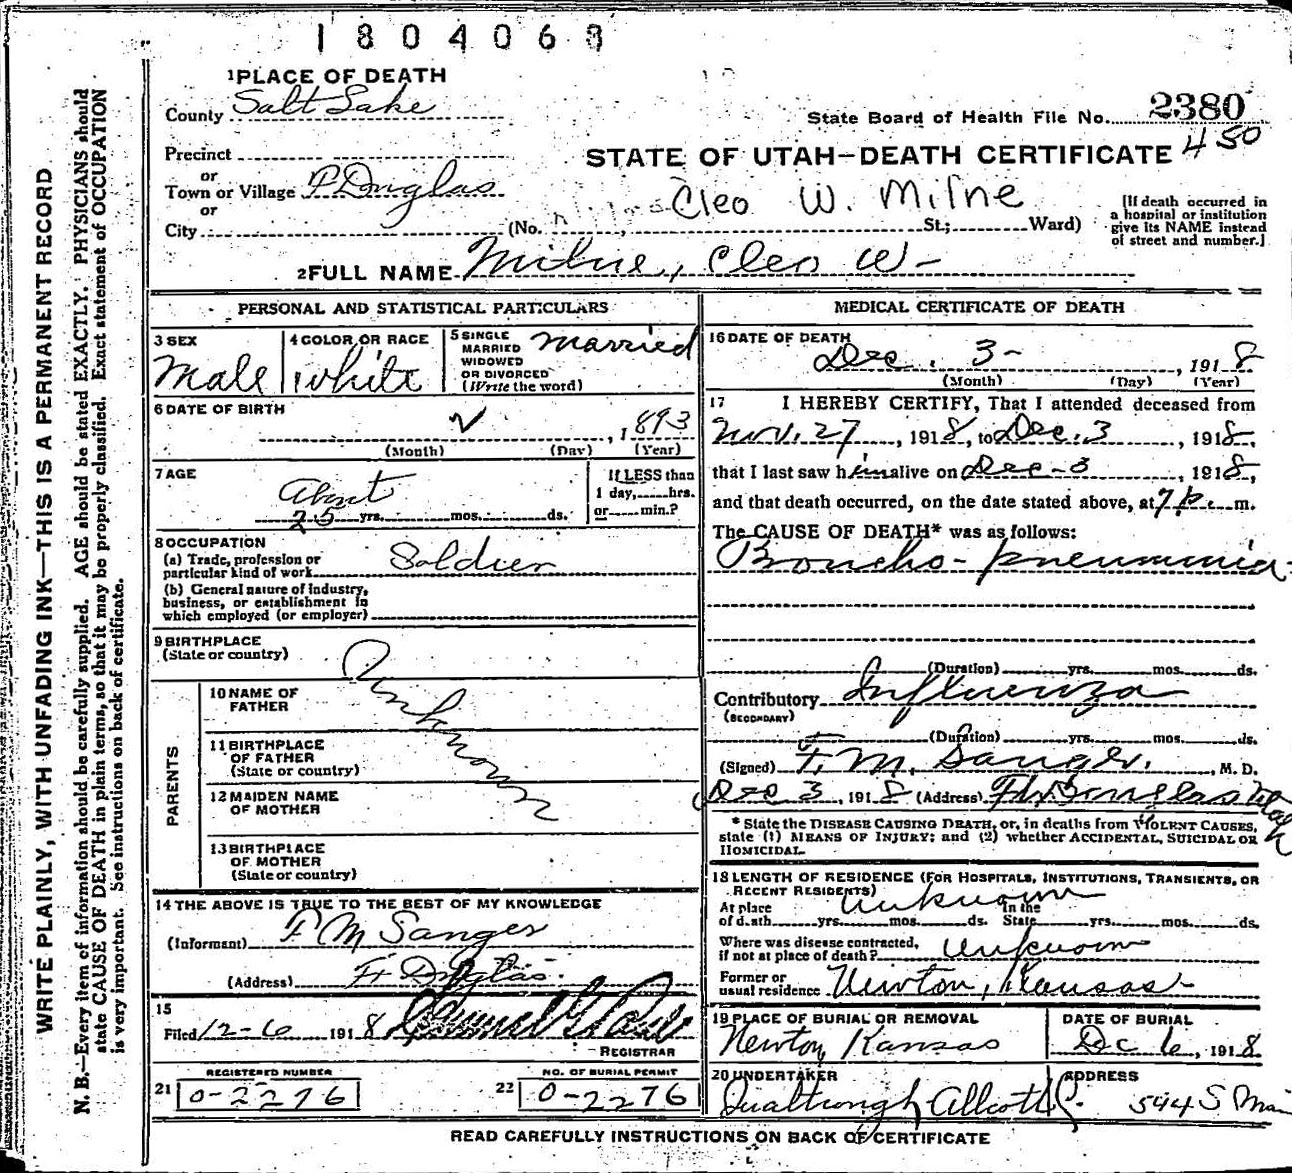 1804068
1 PLACE OF DEATH
County Salt Lake
State Board of Health File No. 2380
450
Precinct
STATE OF UTAH—DEATH CERTIFICATE
or
Town or Village Douglas
Cleo W. Milne
or
City (No. St.; Ward)
[If death occurred in
a hospital or institution
give its NAME instead
of street and number.]
2 FULL NAME Milne, Cleo W-
PERSONAL AND STATISTICAL PARTICULARS
3 SEX
Male
4 COLOR OR RACE
White
5 SINGLE
MARRIED
WIDOWED
OR DIVORCED
(Write the word)
Married
6 DATE OF BIRTH
, 1893
(Month) (Day) (Year)
7 AGE
About
25 yrs. mos. ds.
If LESS than
1 day, hrs.
or min.?
8 OCCUPATION
(a) Trade, profession or
particular kind of work Soldier
(b) General nature of industry,
business, or establishment in
which employed (or employer)
9 BIRTHPLACE
(State or country)
Unknown
PARENTS
10 NAME OF
FATHER
11 BIRTHPLACE
OF FATHER
(State or country)
12 MAIDEN NAME
OF MOTHER
13 BIRTHPLACE
OF MOTHER
(State or country)
14 THE ABOVE IS TRUE TO THE BEST OF MY KNOWLEDGE
(Informant) F M Sanger
(Address) Ft Douglas.
15
Filed 12-6, 1918
REGISTRAR
REGISTERED NUMBER
21 0-2276
NO. OF BURIAL PERMIT
22 0-2276
MEDICAL CERTIFICATE OF DEATH
16 DATE OF DEATH
Dec. 3-, 1918
(Month) (Day) (Year)
17 I HEREBY CERTIFY, That I attended deceased from
Nov. 27, 1918, to Dec. 3, 1918,
that I last saw him alive on Dec-3, 1918,
and that death occurred, on the date stated above, at 7 p. m.
The CAUSE OF DEATH* was as follows:
Broncho-pneumonia-
(Duration) yrs. mos. ds.
Contributory Influenza
(SECONDARY)
(Duration) yrs. mos. ds.
(Signed) F. M. Sanger, M. D.
Dec 3, 1918 (Address) Ft Douglas Utah
* State the DISEASE CAUSING DEATH, or, in deaths from VIOLENT CAUSES,
state (1) MEANS OF INJURY; and (2) whether ACCIDENTAL, SUICIDAL OR
HOMICIDAL.
18 LENGTH OF RESIDENCE (FOR HOSPITALS, INSTITUTIONS, TRANSIENTS, OR
RECENT RESIDENTS)
At place In the
of death yrs. mos. ds. State yrs. mos. ds.
unknown
Where was disease contracted,
if not at place of death? unknown
Former or
usual residence Newton, Kansas-
19 PLACE OF BURIAL OR REMOVAL
Newton, Kansas
DATE OF BURIAL
Dc 6, 1918
20 UNDERTAKER
ADDRESS
544 S Main
READ CAREFULLY INSTRUCTIONS ON BACK OF CERTIFICATE
WRITE PLAINLY, WITH UNFADING INK—THIS IS A PERMANENT RECORD
N. B.—Every item of information should be carefully supplied. AGE should be stated EXACTLY. PHYSICIANS should
state CAUSE OF DEATH in plain terms, so that it may be properly classified. Exact statement of OCCUPATION
is very important. See instructions on back of certificate.